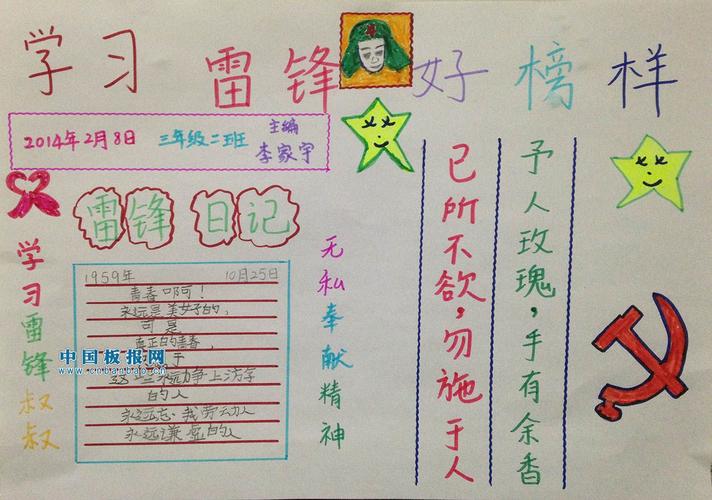 学习雷锋好榜样
2014年2月8日 三年级二班 主编
李家宇
雷锋日记
1959年 10月25日
青春啊!
永远是美好的,
可是
真正的青春,
永远力争上游
的人
永远忘我劳动人
永远谦虚的人
学习雷锋叔叔
无私奉献精神
己所不欲,勿施于人
予人玫瑰,手有余香
中国板报网
www.cnbanbao.cn